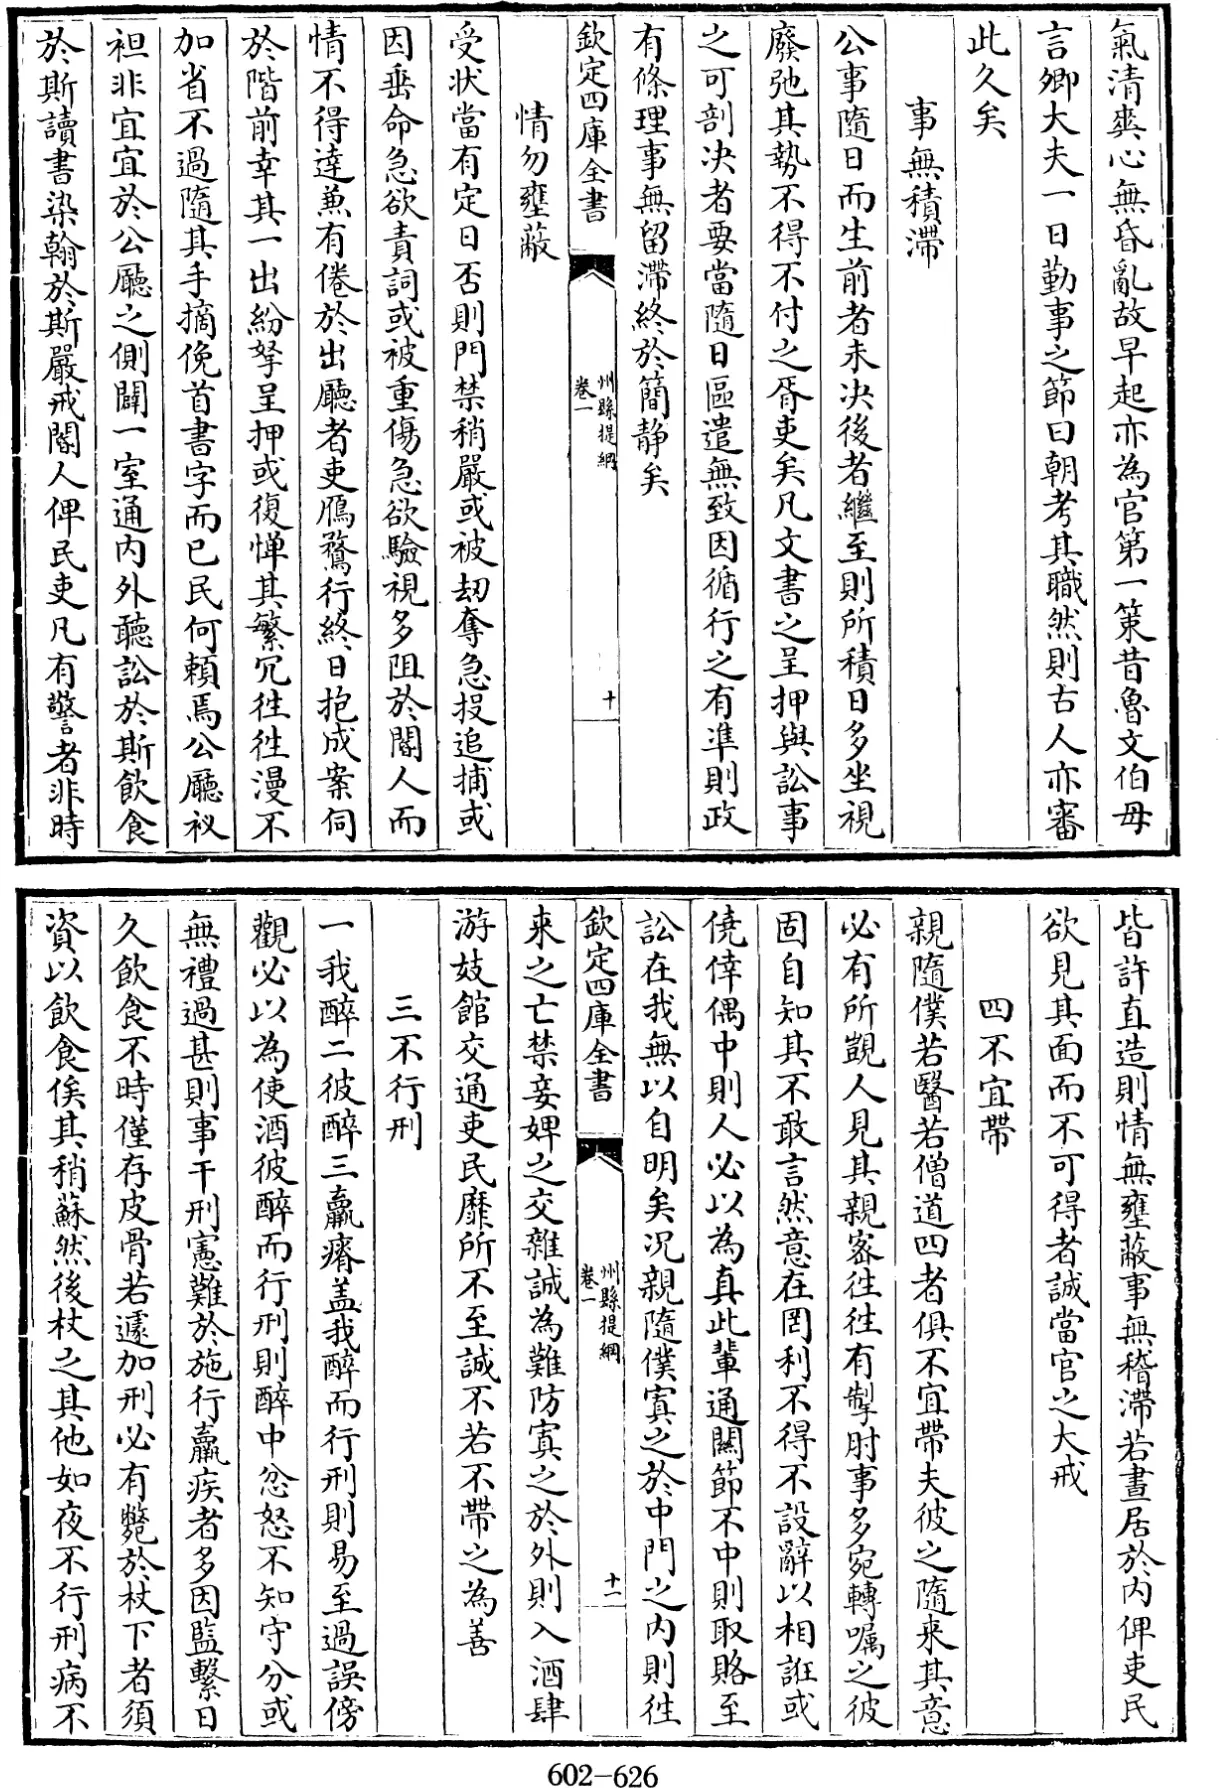 氣清爽心無昏亂故早起亦為官第一策昔魯文伯母
言卿大夫一日勤事之節曰朝考其職然則古人亦審
此久矣
事無積滯
公事隨日而生前者未決後者繼至則所積日多坐視
廢弛其勢不得不付之胥吏矣凡文書之呈押與訟事
之可剖決者要當隨日區遣無致因循行之有準則政
有條理事無留滯終於簡靜矣
欽定四庫全書
州縣提綱
卷一
十
情勿壅蔽
受狀當有定日否則門禁稍嚴或被刼奪急投追捕或
因垂命急欲責詞或被重傷急欲驗視多阻於閽人而
情不得達兼有倦於出廳者吏鴈鶩行終日抱成案伺
於階前幸其一出紛拏呈押或復憚其繁冗徃徃漫不
加省不過隨其手摘俛首書字而已民何頼焉公廳衩
袒非宜宜於公廳之側闢一室通内外聽訟於斯飲食
於斯讀書染翰於斯嚴戒閽人俾民吏凡有警者非時
皆許直造則情無壅蔽事無稽滯若晝居於内俾吏民
欲見其面而不可得者誠當官之大戒
四不宜帶
親隨僕若醫若僧道四者俱不宜帶夫彼之隨来其意
必有所覬人見其親宻徃徃有掣肘事多宛轉嘱之彼
固自知其不敢言然意在罔利不得不設辭以相誑或
僥倖偶中則人必以為真此輩通關節不中則取賂至
訟在我無以自明矣况親隨僕寘之於中門之内則徃
欽定四庫全書
州縣提綱
卷一
十一
来之亡禁妾婢之交雜誠為難防寘之於外則入酒肆
游妓館交通吏民靡所不至誠不若不帶之為善
三不行刑
一我醉二彼醉三羸瘠盖我醉而行刑則易至過誤傍
觀必以為使酒彼醉而行刑則醉中忿怒不知守分或
無禮過甚則事干刑憲難於施行羸疾者多因監繫日
久飲食不時僅存皮骨若遽加刑必有斃於杖下者須
資以飲食俟其稍蘇然後杖之其他如夜不行刑病不
602-626